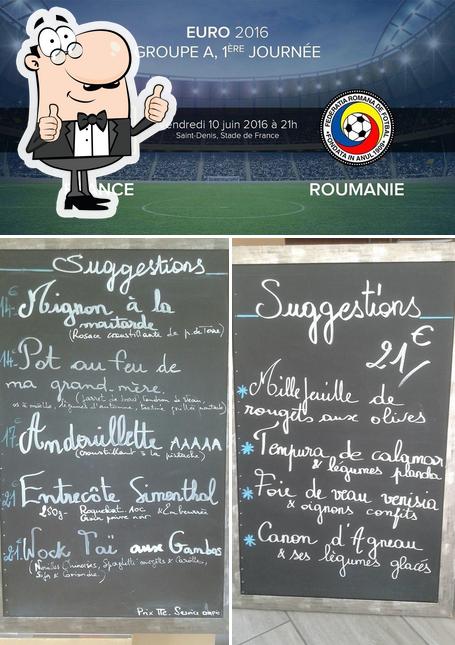 EURO 2016
GROUPE A, 1ÈRE JOURNÉE
endredi 10 juin 2016 à 21h
Saint-Denis, Stade de France
FEDERATIA ROMANA DE FOTBAL
FONDATA IN ANUL 1909
NCE
ROUMANIE
Suggestions
14€ Mignon à la
moutarde
(Rosace croustillante de p. de Terre)
14€ Pot au feu de
ma grand-mère,
os à moëlle, légumes d'automne, tartine grillée moutarde)
17€ Andouillette AAAAA
(croustillant à la pistache)
21€ Entrecôte Simenthal
250g. Roquefort AOC
21€ Wock Taï aux Gambas
(Nouilles Chinoises, Spaghetti courgette & Carotte,
Soja & Coriandre)
Prix TTC. Service compris
Suggestions
21€
* Millefeuille de
rougets aux olives
* Tempura de calamar
& légumes plancha
* Foie de veau venisia
& oignons confits
* Canon d'Agneau
& ses légumes glacés